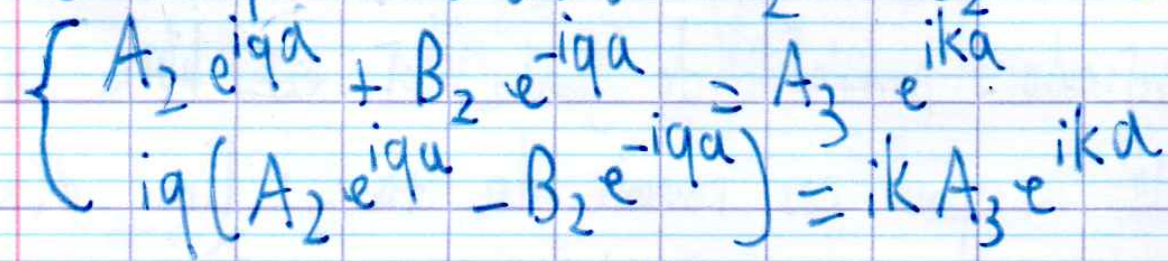 A₂ e^{iqa} + B₂ e^{-iqa} = A₃ e^{ika}
iq(A₂ e^{iqa} - B₂ e^{-iqa}) = ik A₃ e^{ika}